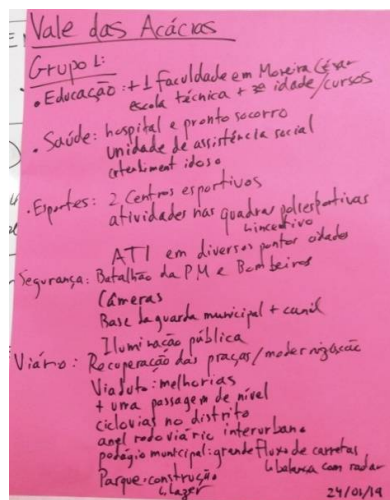 Vale das Acácias
Grupo 1:
• Educação: + 1 faculdade em Moreira César
escola técnica + 3ª idade/cursos
• Saúde: hospital e pronto socorro
unidade de assistência social
atendiment idoso
• Esportes: 2 Centros esportivos
atividades nas quadras poliesportivas
↳ incentivo
ATI em diversos pontos cidade
Segurança: Batalhão da PM e Bombeiros
Câmeras
Base da guarda municipal + canil
Iluminação pública
Viário: Recuperação das praças/modernização
Viaduto: melhorias
+ uma passagem de nível
ciclovias no distrito
anel rodoviário interurbano
pedágio municipal: grande fluxo de carretas
↳ balança com radar
Parque: construção
↳ lazer
24/01/19